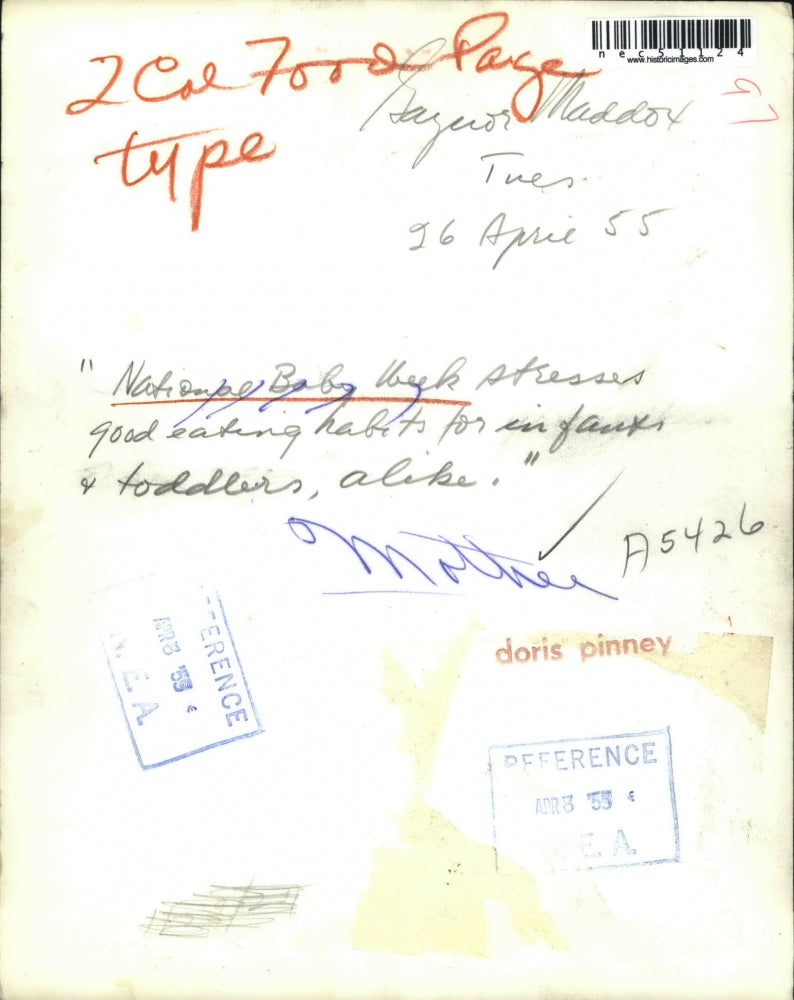 2 Col Food Page
type
nec51124
www.historicimages.com
Gaynor Maddox
Tues
26 April 55
"National Baby Week stresses
good eating habits for infants
& toddlers, alike."
A5426
doris pinney
REFERENCE
APR 8 '55
N. E. A
REFERENCE
APR 8 '55
E. A.